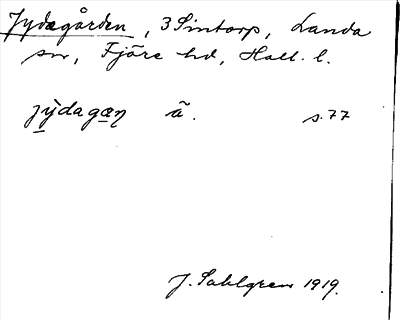 Jydegården, 3 Sintorp, Landa
sn, Fjäre hd, Hall. l.
jy̆dagæn ã. s. 77
J. Sahlgren 1919.